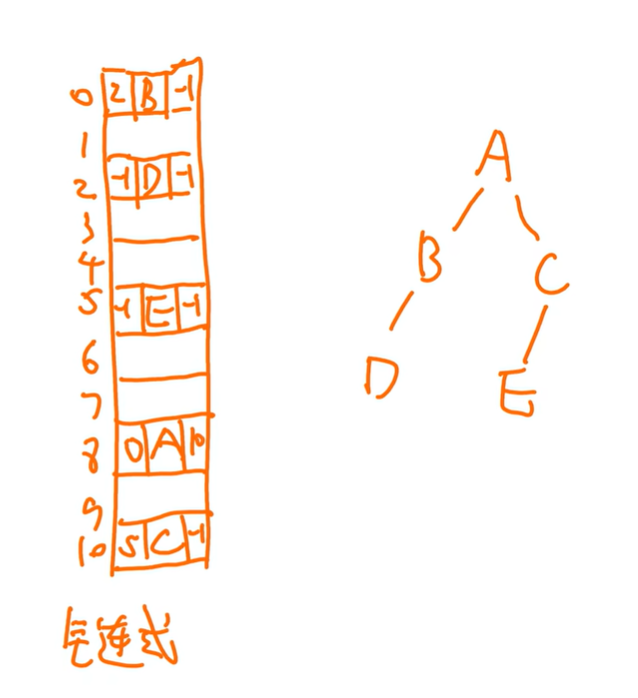 0 2 B -1
1
2 -1 D -1
3
4
5 -1 E -1
6
7
8 0 A 10
9
10 5 C -1
A
B C
D E
连式